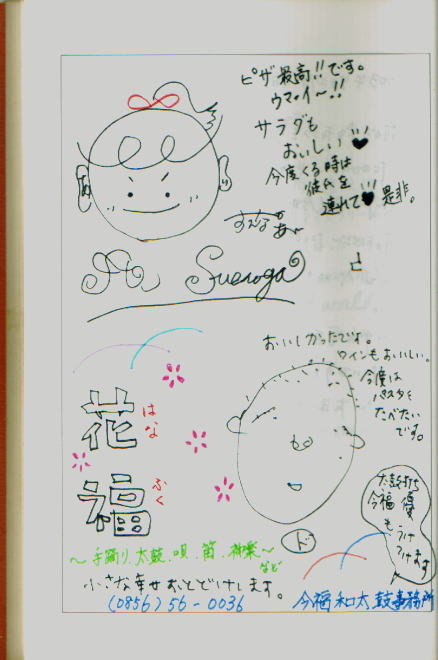 ピザ最高!!です。
ウマァイ〜!!
サラダも
おいしい♥
今度くる時は
彼氏を
連れて♥是非。
Suenaga
おいしかったです。
ワインもおいしい。
今度は
パスタを
たべたい
です。
花 はな
福 ふく
太鼓打ち
今福 優
も
うけ
つけます
ド
〜手踊り、太鼓、唄、笛、神楽〜
など
小さな幸せおとどけします。
(0856)56-0036
今福和太鼓事務所